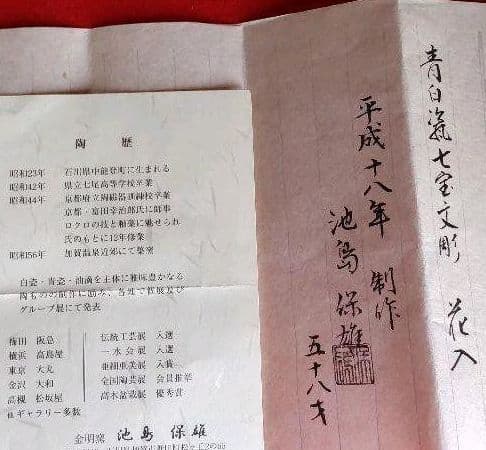 青白瓷七宝文彫 花入
平成十八年 制作
池島保雄
五十八才
陶歴
昭和23年 石川県中能登町に生まれる
昭和42年 県立七尾高等学校卒業
昭和44年 京都府立陶磁器訓練校卒業
京都・富田幸治郎氏に師事
ロクロの技と釉薬に魅せられ
氏のもとに12年修業
昭和56年 加賀温泉近郊にて築窯
白瓷・青瓷・油滴を主体に雅味豊かなる
陶ものの制作に励み、各地で個展及び
グループ展にて発表
梅田 阪急
横浜 高島屋
東京 大丸
金沢 大和
高槻 松坂屋
他ギャラリー多数
伝統工芸展 入選
一水会展 入選
亜細亜美展 入賞
全国陶芸展 会員推挙
高木盆栽展 優秀賞
金明窯 池島 保雄